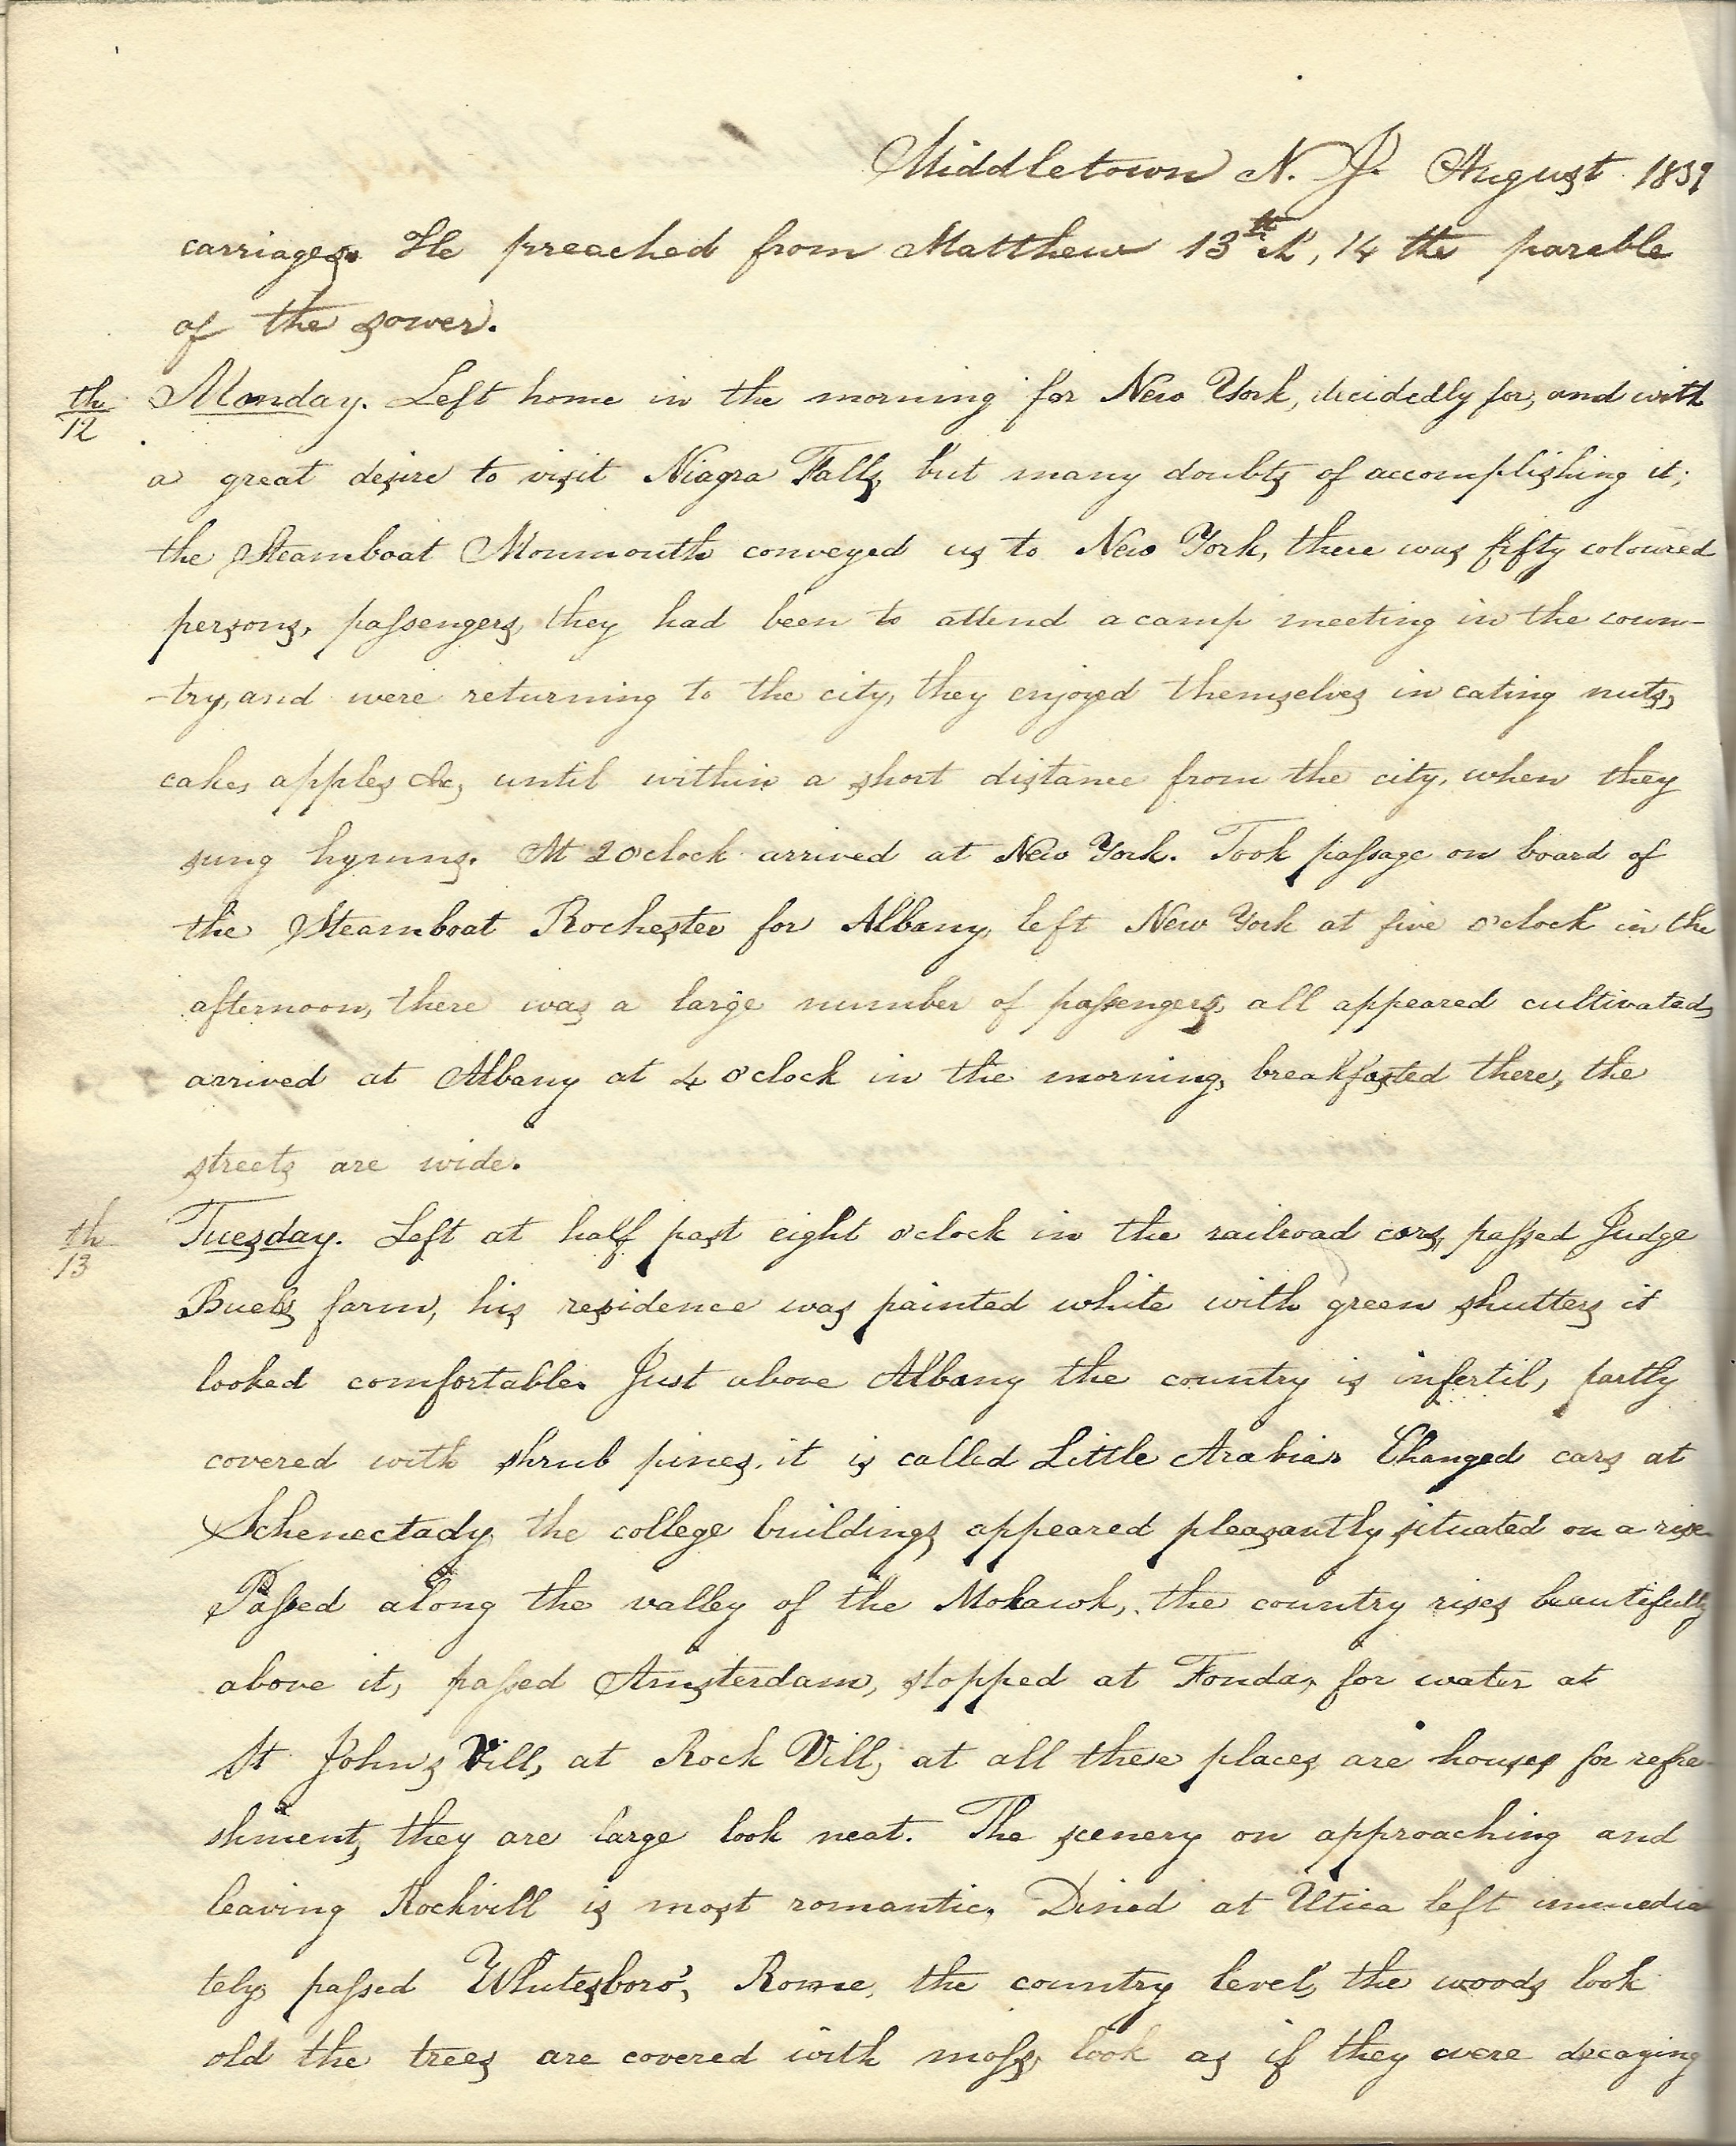 Middletown N. J. August 1839
carriages. He preached from Matthew 13th Ch, 14 the parable
of the sower.
th
12 Monday. Left home in the morning for New York, decidedly for, and with
a great desire to visit Niagra Falls, but many doubts of accomplishing it;
the Steamboat Monmouth conveyed us to New York, there was fifty coloured
persons, passengers, they had been to attend a camp meeting in the coun-
-try, and were returning to the city, they enjoyed themselves in eating nuts,
cakes, apples &c, until within a short distance from the city, when they
sung hymns. At 2 o'clock arrived at New York. Took passage on board of
the Steamboat Rochester for Albany, left New York at five o'clock in the
afternoon, there was a large number of passengers, all appeared cultivated,
arrived at Albany at 4 o'clock in the morning, breakfasted there, the
streets are wide.
th
13 Tuesday. Left at half past eight o'clock in the railroad cars, passed Judge
Buels farm, his residence was painted white with green shutters it
looked comfortable. Just above Albany the country is infertil, partly
covered with shrub pines, it is called Little Arabia. Changed cars at
Schenectady, the college buildings appeared pleasantly situated on a rise.
Passed along the valley of the Mohawk, the country rises beautifully
above it, passed Amsterdam, stopped at Fonda, for water at
St Johns Vill, at Rock Vill, at all these places are houses for refre-
shment, they are large look neat. The scenery on approaching and
leaving Rockvill is most romantic. Dined at Utica left immedia
tely, passed Whitesboro', Rome, the country level, the woods look
old the trees are covered with moss, look as if they were decaying